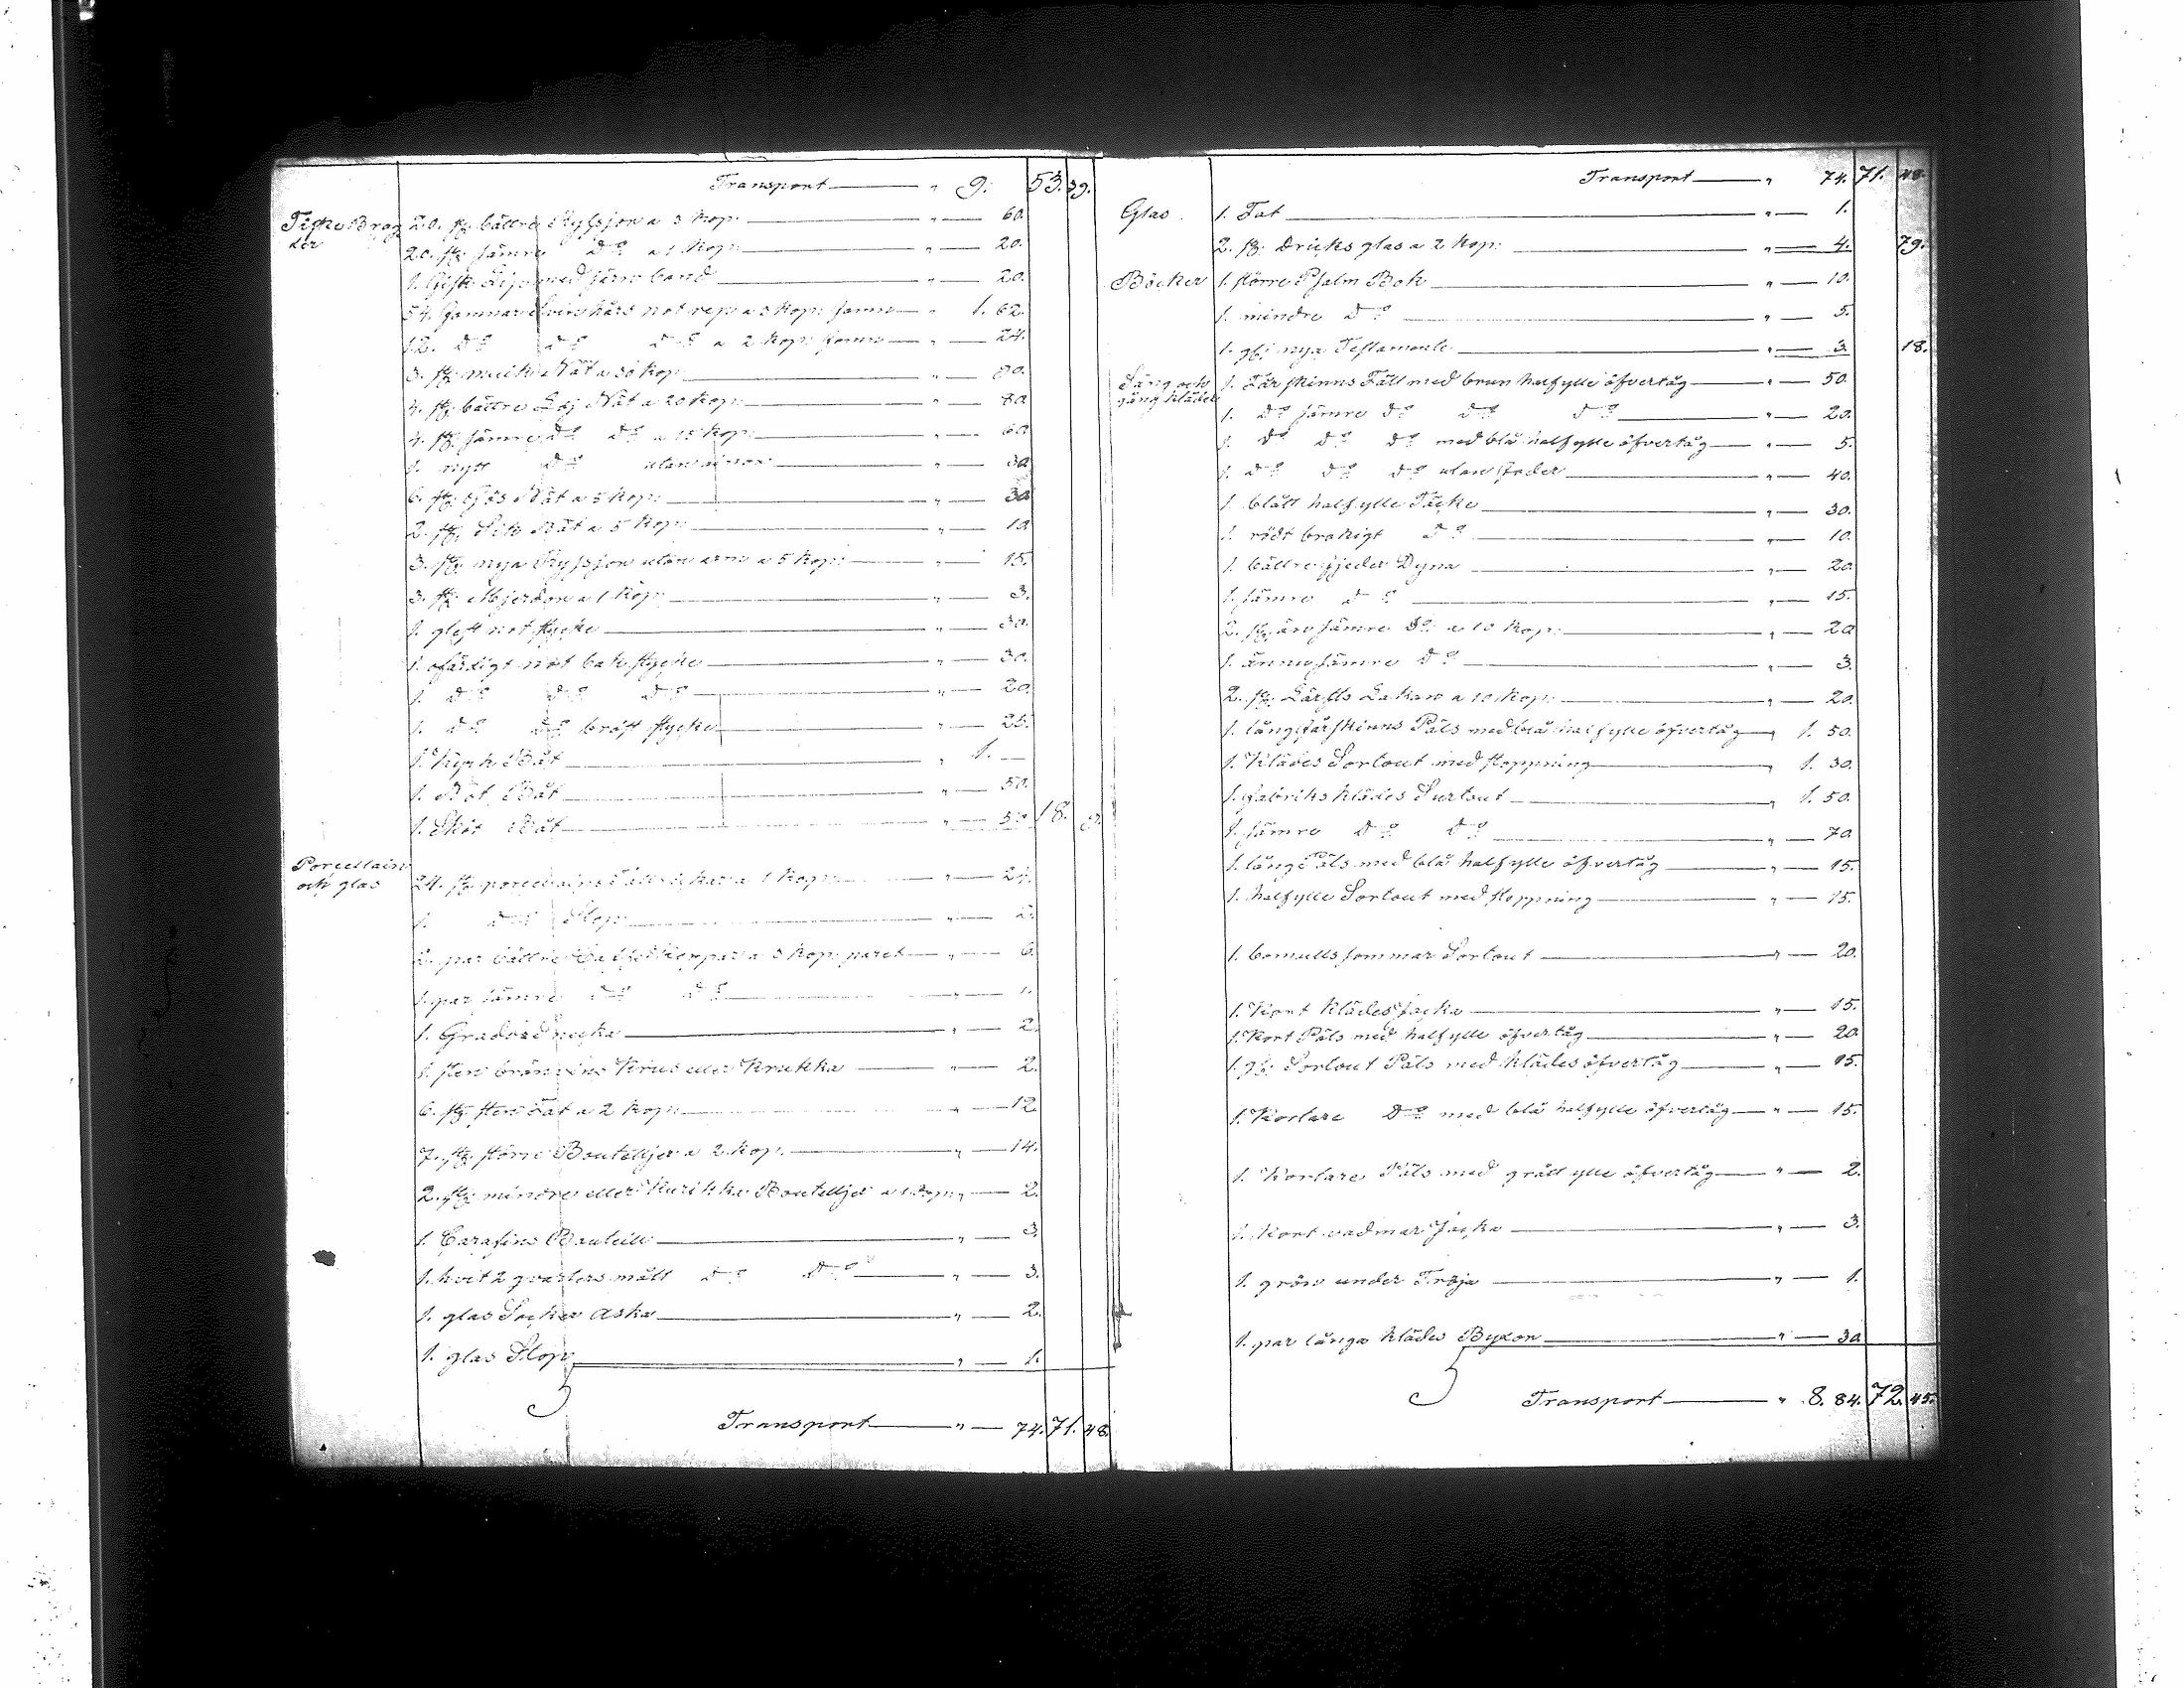 Transport — " 9. 53. 39.
Fiske Brag
der
20. st: bättre Ryssjor a 3 kop: — " — 60.
20. st: sämre do a 1 kop: — " — 20.
1. Fisk med järn band — " — 20.
54. famnar hårs not rep a 3 kop: famn — " 1. 62.
12. do do do a 2 kop: famn — " — 24.
3. st: Nät a 30 kop: — " — 90.
4. st: bättre Löj Nät a 20 kop: — " — 80.
4. st: sämre do do a 15 kop: — " — 60.
1. nytt do utan — " — 30.
6. st: Gös Nät a 5 kop: — " — 30.
2. st: Sik Nät a 5 kop: — " — 10.
3. st: nya Ryssjor utan arm a 5 kop: — " — 15.
3. st: Mjerdor a 1 kop: — " — 3.
1. glest not stycke — " — 30.
1. ofärdigt not bak stycke — " — 30.
1. do do do — " — 20.
1. do do bröst stycke — " — 25.
1. Kyrk Båt — " 1. —
1. Not Båt — " — 50.
1. Sköt Båt — " — 18.
Porcellain
och glas
24. st: porcellains Tallrickar a 1 kop: — " — 24.
1. do Stop — " — 2.
2. par bättre Caffe Koppar a 3 kop: paret — " — 6.
1. par sämre do do — " — 1.
1. Gradd Snecka — " — 2.
1. sten bränvins Krus eller Krukka — " — 2.
6. st: sten Fat a 2 kop: — " — 12.
7. st: större Bouteiljer a 2 kop: — " — 14.
2. st: mindre eller Kurikka Bouteljer a 1 kop: " — 2.
1. Carafins Bouteille — " — 3.
1. hvit 2 qvarters mått do do — " — 3.
1. glas Socker Aska — " — 2.
1. glas Stop — " — 1.
Transport — " — 74. 71. 48.
Transport — " 74. 71. 48.
Glas. 1. Fat — " — 1.
2. st: Dricks glas a 2 kop: — " — 4. 79.
Böcker 1. större Psalm Bok — " — 10.
1. mindre do — " — 5.
1. gl: nya Testamente — " — 3. 18.
Säng och
gång kläder
1. Fårskinns Fäll med brun halfylle öfvertåg — " — 50.
1. do sämre do do do — " — 20.
1. do do do med blå halfylle öfvertåg — " — 5.
1. do do do utan foder — " — 40.
1. blått halfylle Täcke — " — 30.
1. rödt brokigt do — " — 10.
1. bättre fjeder Dyna — " — 20.
1. sämre do — " — 15.
2. st: än sämre do a 10 kop: — " — 20.
1. ännu sämre do — " — 3.
2. st: Lärfts Lakan a 10 kop: — " — 20.
1. lång fårskinns Päls med blå halfylle öfvertåg — " 1. 50.
1. Klädes Sortout med stoppning — " 1. 30.
1. fabriks klädes Surtout — " 1. 50.
1. sämre do do — " — 70.
1. lång Päls med blå halfylle öfvertåg — " — 15.
1. halfylle Sortout med stoppning — " — 15.
1. bomulls sommar Sortout — " — 20.
1. Kort klädes Jacka — " — 15.
1. Kort Päls med halfylle öfvertåg — " — 20.
1. gl: Sortout Päls med klädes öfvertåg — " — 15.
1. Kortare do med blå halfylle öfvertåg — " — 15.
1. Kortare Päls med grått ylle öfvertåg — " — 2.
1. Kort vadmar Jacka — " — 3.
1. grön under Tröja — " — 1.
1. par långa klädes Byxor — " — 30.
Transport — " 8. 84. 72. 45.